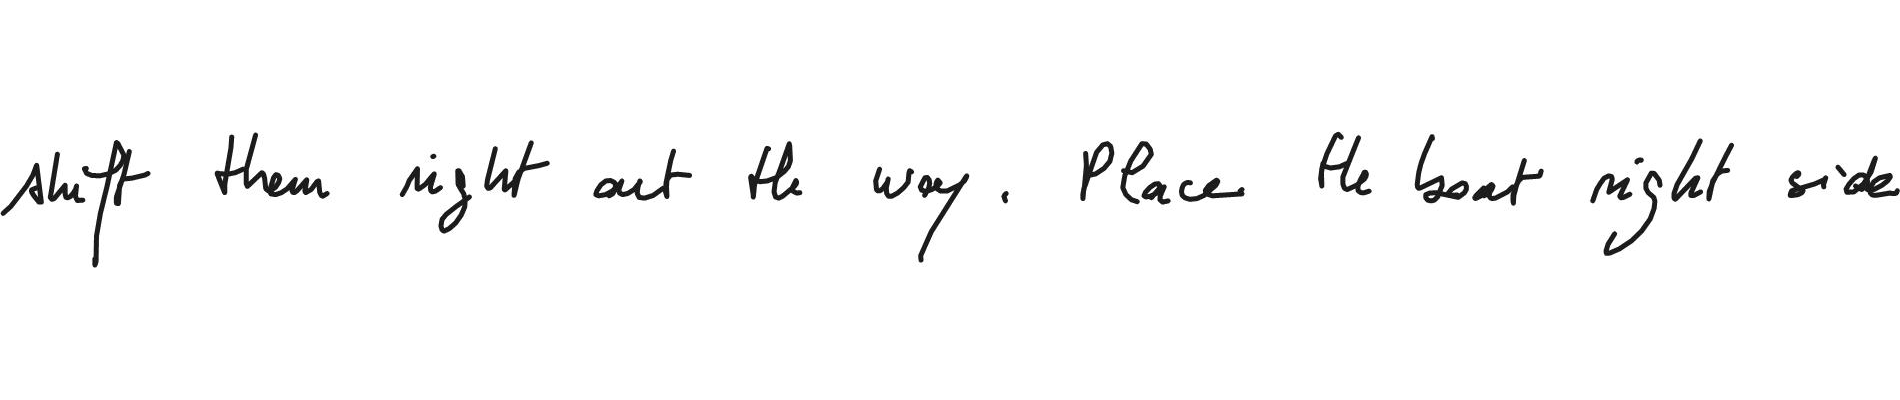 shift them right out the way. Place the boat right side